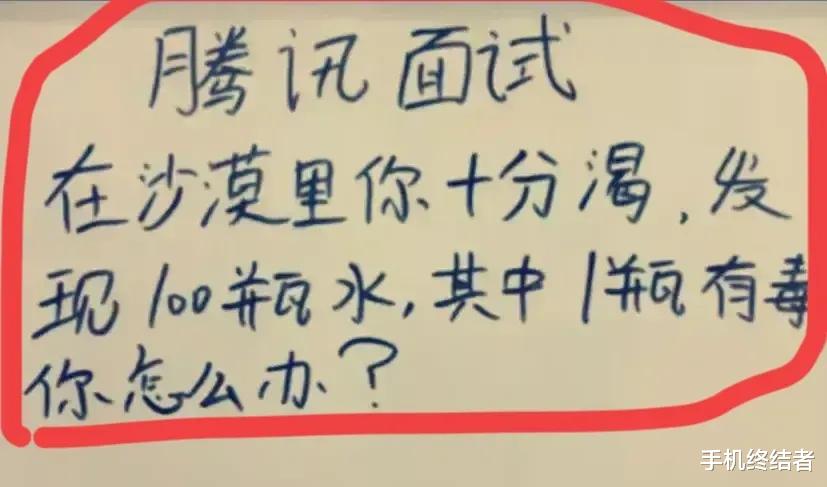 腾讯面试
在沙漠里你十分渴,发
现100瓶水,其中1瓶有毒
你怎么办?
手机终结者